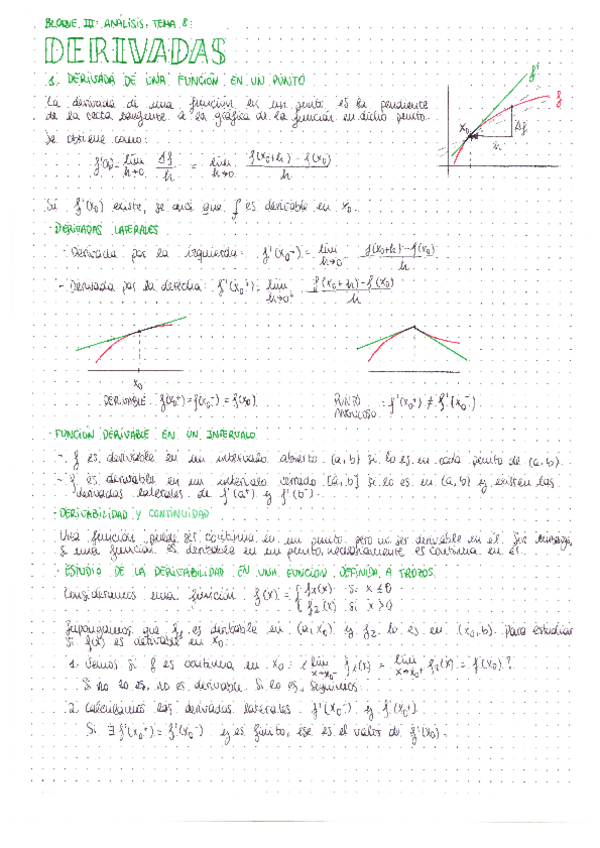 BLOQUE III: ANÁLISIS. TEMA 8:
DERIVADAS
1. DERIVADA DE UNA FUNCIÓN EN UN PUNTO
La derivada de una función en un punto es la pendiente
de la recta tangente a la gráfica de la función en dicho punto.
Se obtiene como:
f'(x₀) = lim h→0 Δf/h = lim h→0 (f(x₀+h) - f(x₀))/h
f'
f
x₀
Δf
h
Si f'(x₀) existe, se dice que f es derivable en x₀.
· DERIVADAS LATERALES
- Derivada por la izquierda: f'(x₀⁻) = lim h→0⁻ (f(x₀+h) - f(x₀))/h
- Derivada por la derecha: f'(x₀⁺) = lim h→0⁺ (f(x₀+h) - f(x₀))/h
x₀
DERIVABLE f(x₀⁺) = f(x₀⁻) = f(x₀)
PUNTO ANGULOSO: f'(x₀⁺) ≠ f'(x₀⁻)
· FUNCIÓN DERIVABLE EN UN INTERVALO
- f es derivable en un intervalo abierto (a,b) si lo es en cada punto de (a,b).
- f es derivable en un intervalo cerrado [a,b] si lo es en (a,b) y existen las
derivadas laterales de f'(a⁺) y f'(b⁻).
· DERIVABILIDAD Y CONTINUIDAD
Una función puede ser continua en un punto pero no ser derivable en él. Sin embargo,
si una función es derivable en un punto, necesariamente es continua en él.
· ESTUDIO DE LA DERIVABILIDAD EN UNA FUNCIÓN DEFINIDA A TROZOS
Consideramos una función f(x) = { f₁(x) si x ≤ 0
f₂(x) si x > 0
Supongamos que f₁ es derivable en (a,x₀) y f₂ lo es en (x₀,b). Para estudiar
si f(x) es derivable en x₀:
1. Vemos si f es continua en x₀: ¿ lim x→x₀⁻ f₁(x) = lim x→x₀⁺ f₂(x) = f(x₀)?
Si no lo es, no es derivable. Si lo es, seguimos.
2. Calculamos las derivadas laterales f'(x₀⁻) y f'(x₀⁺).
Si ∃ f'(x₀⁺) = f'(x₀⁻) y es finito, ese es el valor de f'(x₀).